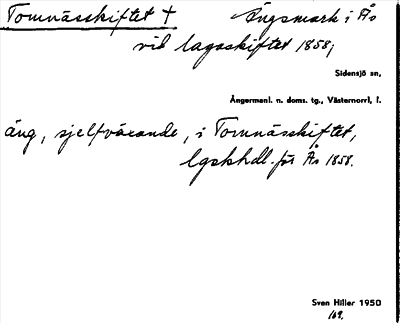 Tomnässkiftet † Ängsmark i Ås
vid lagaskiftet 1858;
Sidensjö sn,
Ångermanl. n. doms. tg., Västernorrl. l.
äng, sjelfväxande, i Tomnässkiftet,
lgskhdl. för Ås 1858.
Sven Hiller 1950
169.